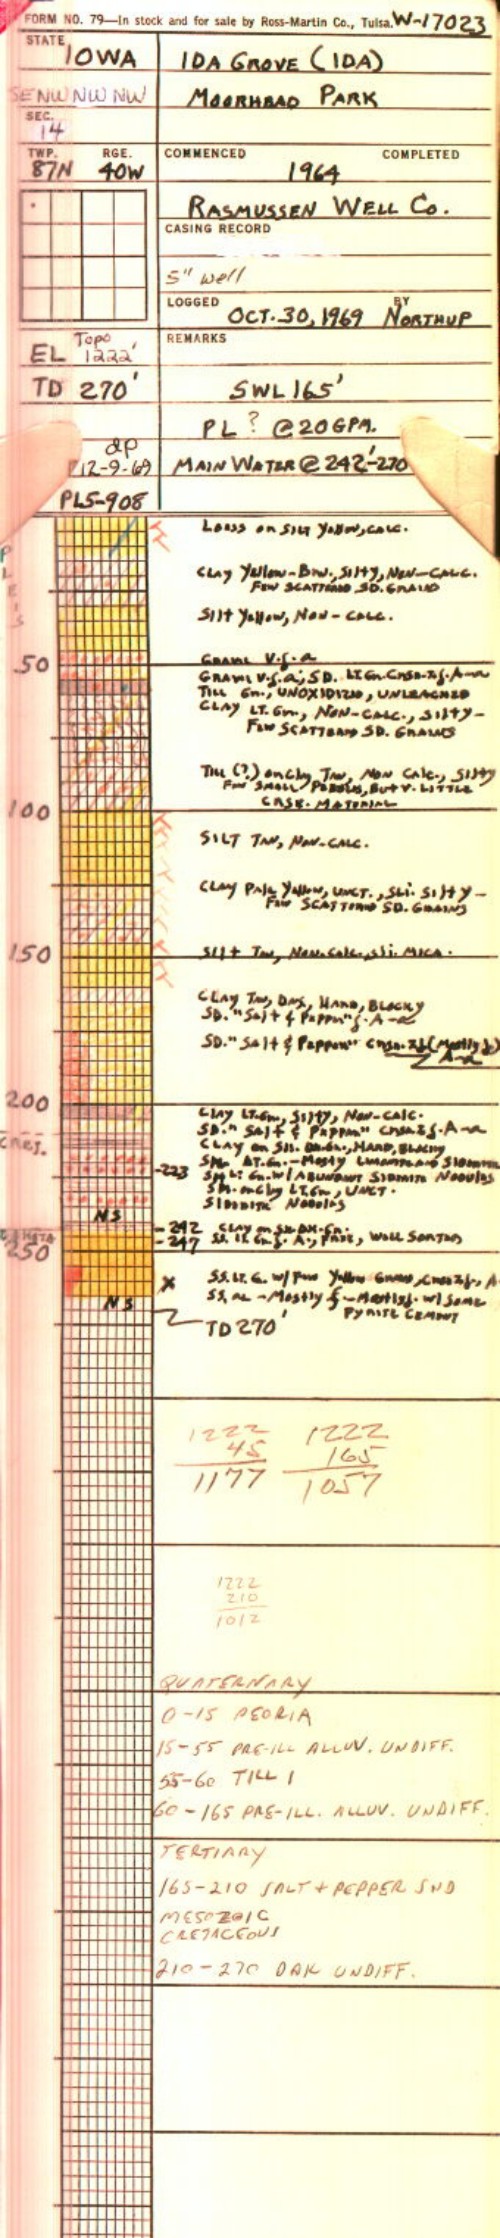 FORM NO. 79—In stock and for sale by Ross-Martin Co., Tulsa. W-17023
STATE IOWA
IDA GROVE (IDA)
SE NW NW NW
MOORHEAD PARK
SEC. 14
TWP. 87N RGE. 40W
COMMENCED 1964 COMPLETED
RASMUSSEN WELL CO.
CASING RECORD
5" well
LOGGED OCT. 30, 1969 BY NORTHUP
EL Topo 1222'
REMARKS
TD 270'
SWL 165'
PL ? @ 20 GPM.
dp
12-9-69
MAIN WATER @ 242'-270
PLS-908
PLEIS
LOESS OR SILT YELLOW, CALC.
CLAY YELLOW-BRN., SILTY, NON-CALC.
FEW SCATTERED SD. GRAINS
SILT YELLOW, NON-CALC.
50
GRAVEL V.f.-a
GRAVEL V.f.-a; SD. LT. GN. CRSE-Vf. A-a
TILL GN., UNOXIDIZED, UNLEACHED
CLAY LT. GN., NON-CALC., SILTY-
FEW SCATTERED SD. GRAINS
TILL (?) OR CLAY TAN, NON CALC., SILTY
FEW SMALL PEBBLES, BUT V. LITTLE
CRSE. MATERIAL
100
SILT TAN, NON-CALC.
CLAY PALE YELLOW, UNCT., SLI. SILTY-
FEW SCATTERED SD. GRAINS
150
SILT TAN, NON-CALC., SLI. MICA.
CLAY TAN, DNS, HARD, BLOCKY
SD. "SALT & PEPPER" f. A-a
SD. "SALT & PEPPER" CRSE-Vf (MOSTLY f)
A-a
200
CLAY LT. GN., SILTY, NON-CALC.
SD. "SALT & PEPPER" CRSE-Vf. A-a
CRET.
CLAY OR SH. DK. GN., HARD, BLOCKY
SH. LT. GN.-MOSTLY LIMONITE AND SIDERITE
-223
SH. LT. GN. W/ ABUNDANT SIDERITE NODULES
SH. OR CLAY LT. GN., UNCT.
SIDERITE NODULES
NS
-242 CLAY OR SH. DK. GN.
-247 SS. LT. GN. f. A., FREE, WELL SORTED
DAKOTA
250
X SS. LT. G. W/ FEW YELLOW GRAINS, CRSE-Vf., A
SS. AA -MOSTLY f-MED. W/ SOME
PYRITE CEMENT
NS
TD 270'
1222 1222
45 165
1177 1057
1222
210
1012
QUATERNARY
0-15 PEORIA
15-55 PRE-ILL ALLUV. UNDIFF.
55-60 TILL 1
60-165 PRE-ILL. ALLUV. UNDIFF.
TERTIARY
165-210 SALT + PEPPER SND
MESOZOIC
CRETACEOUS
210-270 DAK UNDIFF.